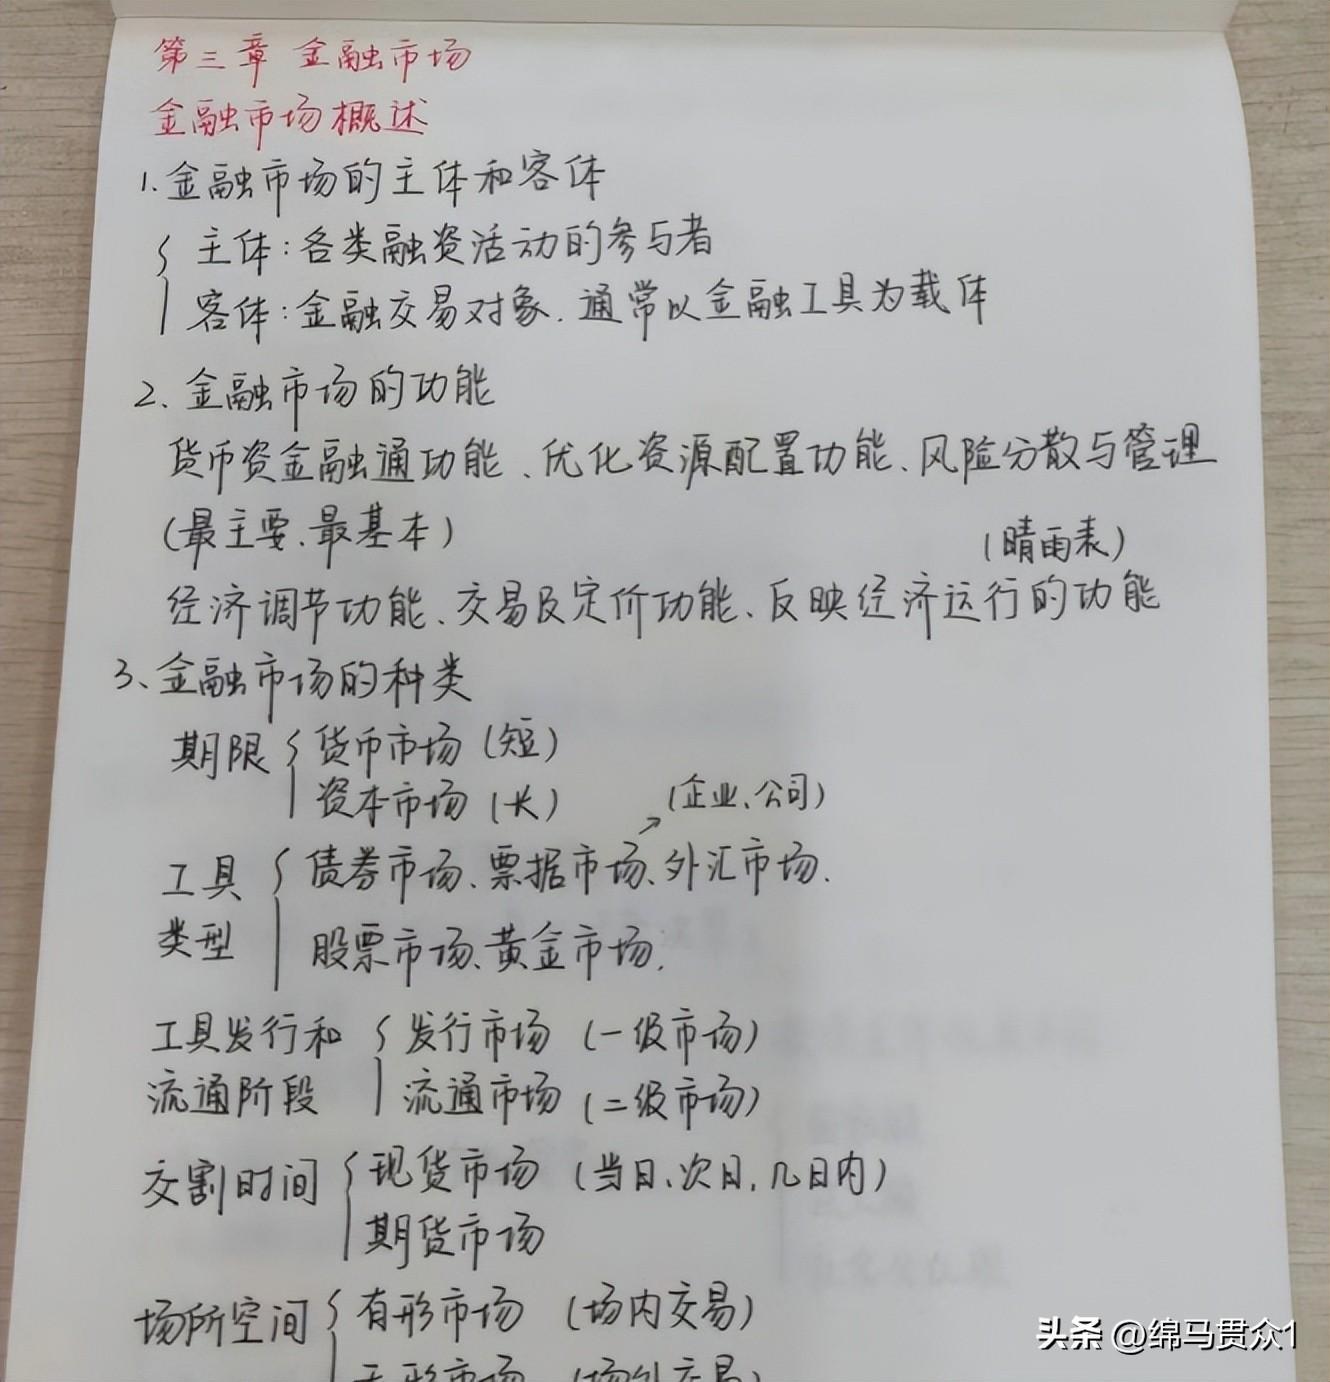 第三章 金融市场
金融市场概述
1.金融市场的主体和客体
主体:各类融资活动的参与者
客体:金融交易对象.通常以金融工具为载体
2、金融市场的功能
货币资金融通功能、优化资源配置功能、风险分散与管理
(最主要、最基本)
(晴雨表)
经济调节功能、交易及定价功能、反映经济运行的功能
3、金融市场的种类
期限 货币市场(短)
资本市场(长)
(企业、公司)
工具 债券市场、票据市场、外汇市场.
类型 股票市场、黄金市场.
工具发行和 发行市场 (一级市场)
流通阶段 流通市场 (二级市场)
交割时间 现货市场 (当日、次日,几日内)
期货市场
场所空间 有形市场 (场内交易)
无形市场 (场外交易)
头条 @绵马贯众1